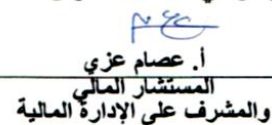 أ. عصام عزي
المستشار المالي
والمشرف على الإدارة المالية